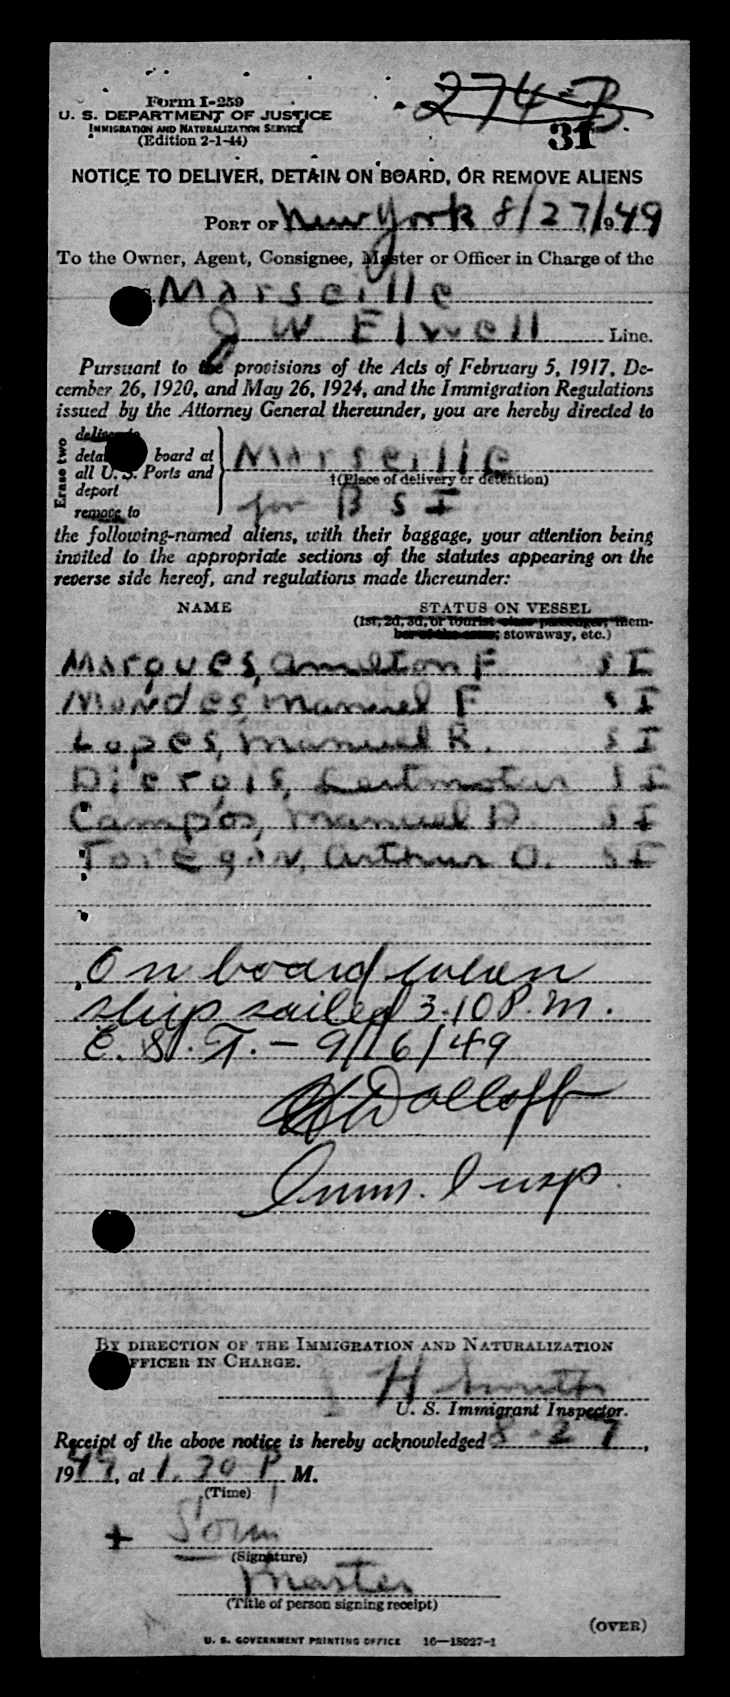 274-B
31
Form I-259
U. S. DEPARTMENT OF JUSTICE
IMMIGRATION AND NATURALIZATION SERVICE
(Edition 2-1-44)
NOTICE TO DELIVER, DETAIN ON BOARD, OR REMOVE ALIENS
PORT OF New York 8/27/1949
To the Owner, Agent, Consignee, Master or Officer in Charge of the
Marseille
J W Elwell Line.
Pursuant to the provisions of the Acts of February 5, 1917, De-
cember 26, 1920, and May 26, 1924, and the Immigration Regulations
issued by the Attorney General thereunder, you are hereby directed to
Erase two
deliver to
detain board at
all U. S. Ports and
deport
remove to
Marseille
†(Place of delivery or detention)
for B S I
the following-named aliens, with their baggage, your attention being
invited to the appropriate sections of the statutes appearing on the
reverse side hereof, and regulations made thereunder:
NAME STATUS ON VESSEL
(1st, 2d, 3d, or tourist class passenger, mem-
ber of the crew, stowaway, etc.)
Marques, Amilton F S I
Mendes, Manuel F S I
Lopes, Manuel R. S I
S I
Campos, Manuel D. S I
Arthur O. S I
On board when
ship sailed 3.10 P.M.
E. S. T. - 9/16/49
Imm. Insp.
BY DIRECTION OF THE IMMIGRATION AND NATURALIZATION
OFFICER IN CHARGE.
H Smith
U. S. Immigrant Inspector.
Receipt of the above notice is hereby acknowledged 8-27,
1949, at 1.30 P M.
(Time)
+
(Signature)
Master
(Title of person signing receipt)
(OVER)
U. S. GOVERNMENT PRINTING OFFICE 16—18027-1